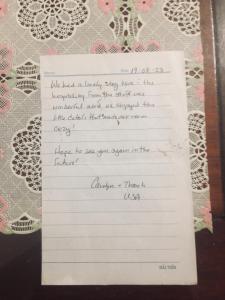 Date 19-08-23
We had a lovely stay here - the
hospitality from the staff was
wonderful and we enjoyed the
little details that made our room
cozy!
Hope to see you again in the
future!
Carolyn +
USA
HẢI TIẾN